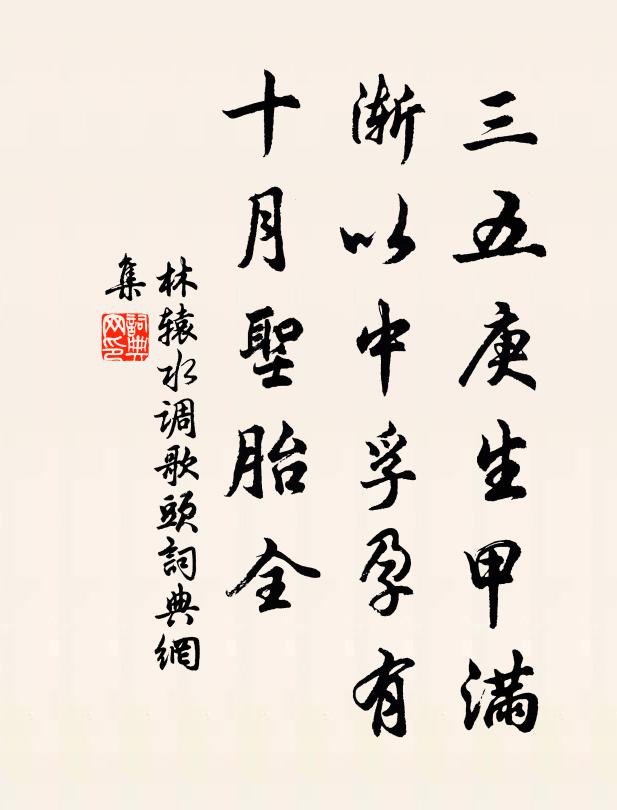 三五庚生甲满
渐以中孚孕有
十月聖胎全
林辕水调歌頭詞典網
集
詞典
网印